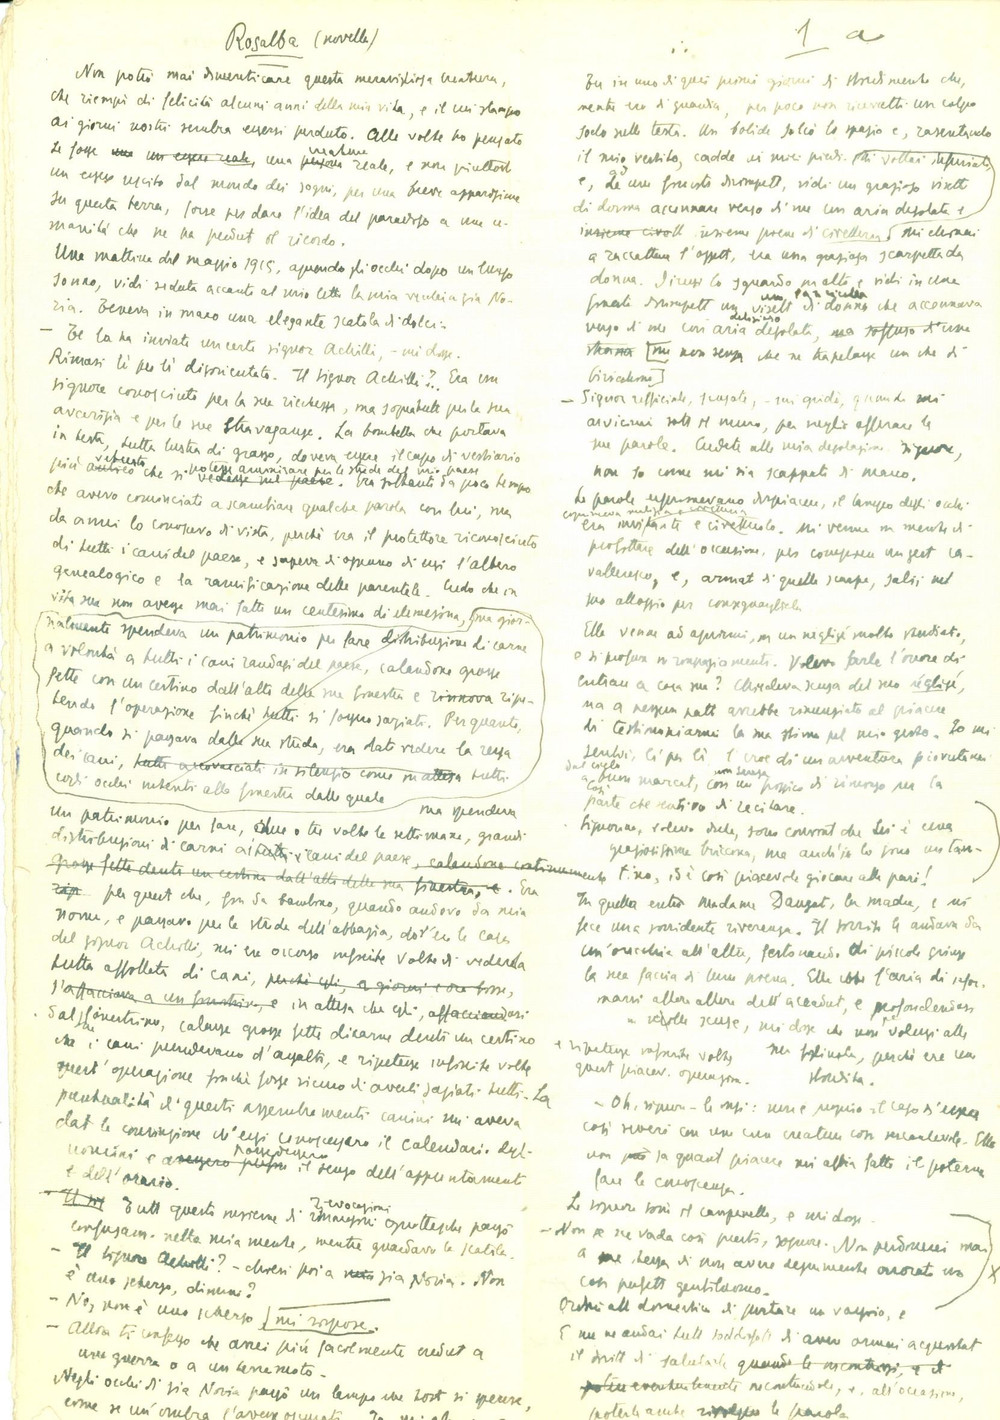 Rosalba (novella)
Non potrò mai dimenticare questa meravigliosa creatura,
che riempì di felicità alcuni anni della mia vita, e il cui stampo
ai giorni nostri sembra essersi perduto. Alle volte ho pensato
se fosse una un essere reale, una persona creatura reale, e non piuttosto
un essere uscito dal mondo dei sogni, per una breve apparizione
su questa terra, forse per dare l'idea del paradiso a una u-
manità che ne ha perduto il ricordo.
Una mattina del maggio 1915, aprendo gli occhi dopo un lungo
sonno, vidi seduta accanto al mio letto la mia vecchia zia No-
ria. Teneva in mano una elegante scatola di dolci.
— Te la ha inviata un certo signor Achilli, - mi disse.
Rimasi lì per lì disorientato. Il signor Achilli?.. Era un
signore conosciuto per la sua ricchezza, ma soprattutto per la sua
avarizia e per le sue stravaganze. La bombetta che portava
in testa, tutta lustra di grasso, doveva essere il capo di vestiario
più antico vetusto che si vedesse nel paese potesse ammirare per le strade del mio paese. Era soltanto da poco tempo
che avevo cominciato a scambiare qualche parola con lui, ma
da anni lo conoscevo di vista, perchè era il protettore riconosciuto
di tutti i cani del paese, e sapeva di ognuno di essi l'albero
genealogico e la ramificazione delle parentele. Credo che in
vita sua non avesse mai fatto un centesimo di elemosina, ma gior-
nalmente spendeva un patrimonio per fare distribuzione di carne
a volontà a tutti i cani randagi del paese, calandone grosse
fette con un cestino dall'alto della sua finestra e rinnova ripe-
tendo l'operazione finchè tutti si fossero saziati. Per quanto,
quando si passava dalla sua strada, era dato vedere la ressa
dei cani, tutti accovacciati in silenzio come in attesa tutti
cogli occhi intenti alla finestra dalla quale
ma spendeva
un patrimonio per fare, due o tre volte la settimana, grandi
distribuzioni di carni a tutti i cani del paese, calandone continuamente
grosse fette dentro un cestino dall'alto della sua finestra, e . Era
rip per questo che, fin da bambino, quando andavo da mia
nonna, e passavo per la strada dell'abbazia, dov'era la casa
del signor Achilli, mi era occorso infinite volte di vederla
tutta affollata di cani, perchè egli, a giorni e ore fisse,
s'affacciava a un finestrino, e in attesa che egli, affacciandosi
dal finestrino, calasse grosse fette di carne dentro un cestino
che i cani prendevano d'assalto, e ripetesse infinite volte
quest'operazione finchè fosse sicuro di averli saziati tutti. La
puntualità di questi assembramenti canini mi aveva
dato la convinzione ch'essi conoscessero il calendario degli
uomini e avessero possedessero il senso dell'appuntamento
e dell'orario.
Tutto questo insieme di immagini evocazioni grottesche passò
confusam. nella mia mente, mentre guardavo la scatola.
— Il signor Achilli? - chiesi poi a zia Noria. Non
è uno scherzo, dimmi?
— No, non è uno scherzo mi rispose.
— Allora ti confesso che avrei più facilmente creduto a
una guerra o a un terremoto.
Negli occhi di zia Noria passò un lampo che tosto si spense,
come se un'ombra l'avesse oscurato.
1 a
Fu in uno di quei primi giorni di stordimento che,
mentre ero di guardia, per poco non ricevetti un colpo
sodo sulla testa. Un bolide solcò lo spazio e, rasentando
il mio vestito, cadde ai miei piedi. Mi voltai infuriato
e, da una finestra dirimpetto, vidi un grazioso visetto
di donna accennare verso di me con aria desolata e
insieme civett insieme piena di civetteria. Mi chinai
a raccattare l'oggetto, era una graziosa scarpetta da
donna. Diressi lo sguardo in alto e vidi in una
finestra dirimpetto un visetto di donna una fanciulla che accennava
verso di me con aria desolata, ma soffusa d'una
strana ma non senza che ne trapelasse un che di
birichino
— Signor ufficiale, scusate, - mi gridò, quando mi
avvicinai sotto il muro, per meglio afferrare le
sue parole. Credete alla mia desolazione signore,
non so come mi sia scappata di mano.
Le parole esprimevano dispiacere, il lampo degli occhi
esprimeva malizia e civetteria
era invitante e civettuolo. Mi venne in mente di
profittare dell'occasione per compiere un gesto ca-
valleresco, e, armato di quella scarpa, salii nel
suo alloggio per consegnargliela.
Ella venne ad aprirmi, in un negligé molto studiato,
e si profuse in ringraziamenti. Volevo farle l'onore di
entrare a casa sua? Chiedeva scusa del suo négligé,
ma a nessun patto avrebbe rinunziato al piacere
di testimoniarmi la sua stima pel mio gesto. Io mi
sentivo, lì per lì, l'eroe di un'avventura piovutami
dal cielo
a buon mercato, con non senza un pizzico di rimorso per la
parte che sentivo di recitare.
Signorina, volevo dirle, sono convinto che Lei è una
graziosissima briccona, ma anch'io lo sono un tan-
tino, ed è così piacevole giocare alla pari!
In quella entrò Madame Dangat, la madre, e mi
fece una sorridente riverenza. Il sorriso le andava da
un'orecchia all'altra, festonando di piccole grinze
la sua faccia di luna piena. Ella ebbe l'aria di infor-
marsi allora allora dell'accaduto, e profondendosi
in molte scuse, mi disse che non volessi alla
sua figliuola, perchè era una
stordita.
e ripetesse infinite volte
quest piacev. operazione.
— Oh, signora - le risi: non è proprio il caso d'essere
così severi con una cara creatura così incantevole. Ella
non sa quanto piacere mi abbia fatto il poterne
fare la conoscenza.
La signora suonò il campanello, e mi disse.
— Non se ne vada così presto, signore. Non perdonerei mai
a me stessa di non avere degnamente onorato un
così perfetto gentiluomo.
Ordinò alla domestica di portare un vassoio, e
E me ne andai tutto soddisfatto di avere ormai acquistato
il diritto di salutarla quando la incontrassi, e di
poter eventualmente incontrandola, e, all'occasione,
poterle anche rivolgere la parola